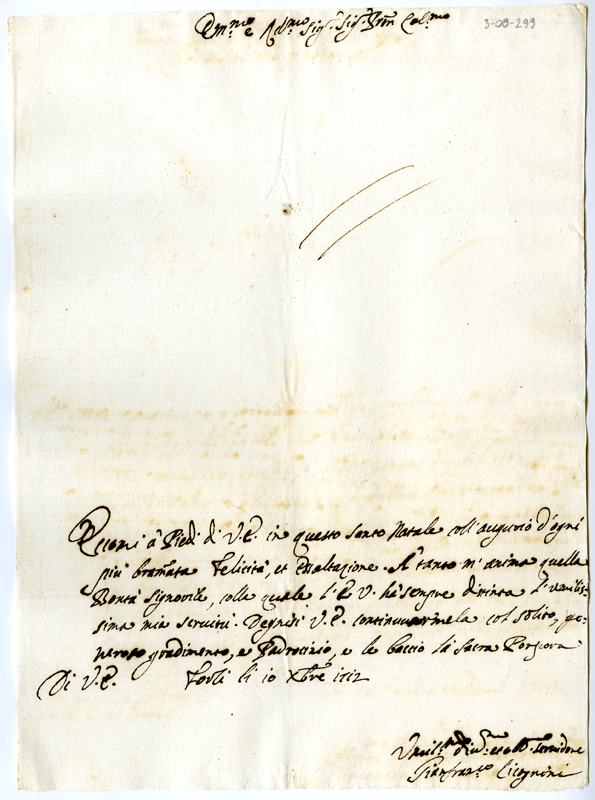 Em.mo e Rd.mo Sig.r Sig.r Pron Col.mo
3-08-299
Eccomi à Piedi di V.E. in questo Santo Natale coll'augurio d'ogni
più bramata Felicità, et Esaltazione. A tanto m'anima quella
Bontà Signorile, colla quale l'E.V. hà sempre distinta l'umilis-
sima mia servitù. Degnisi V.E. continuarmela col solito, ge-
neroso gradimento, e Padrocinio, e le baccio la Sacra Porpora
Di V.E. Forlì li 10 Xbre 1712
Umil.mo Servidore
Gianfran.co Cicognini